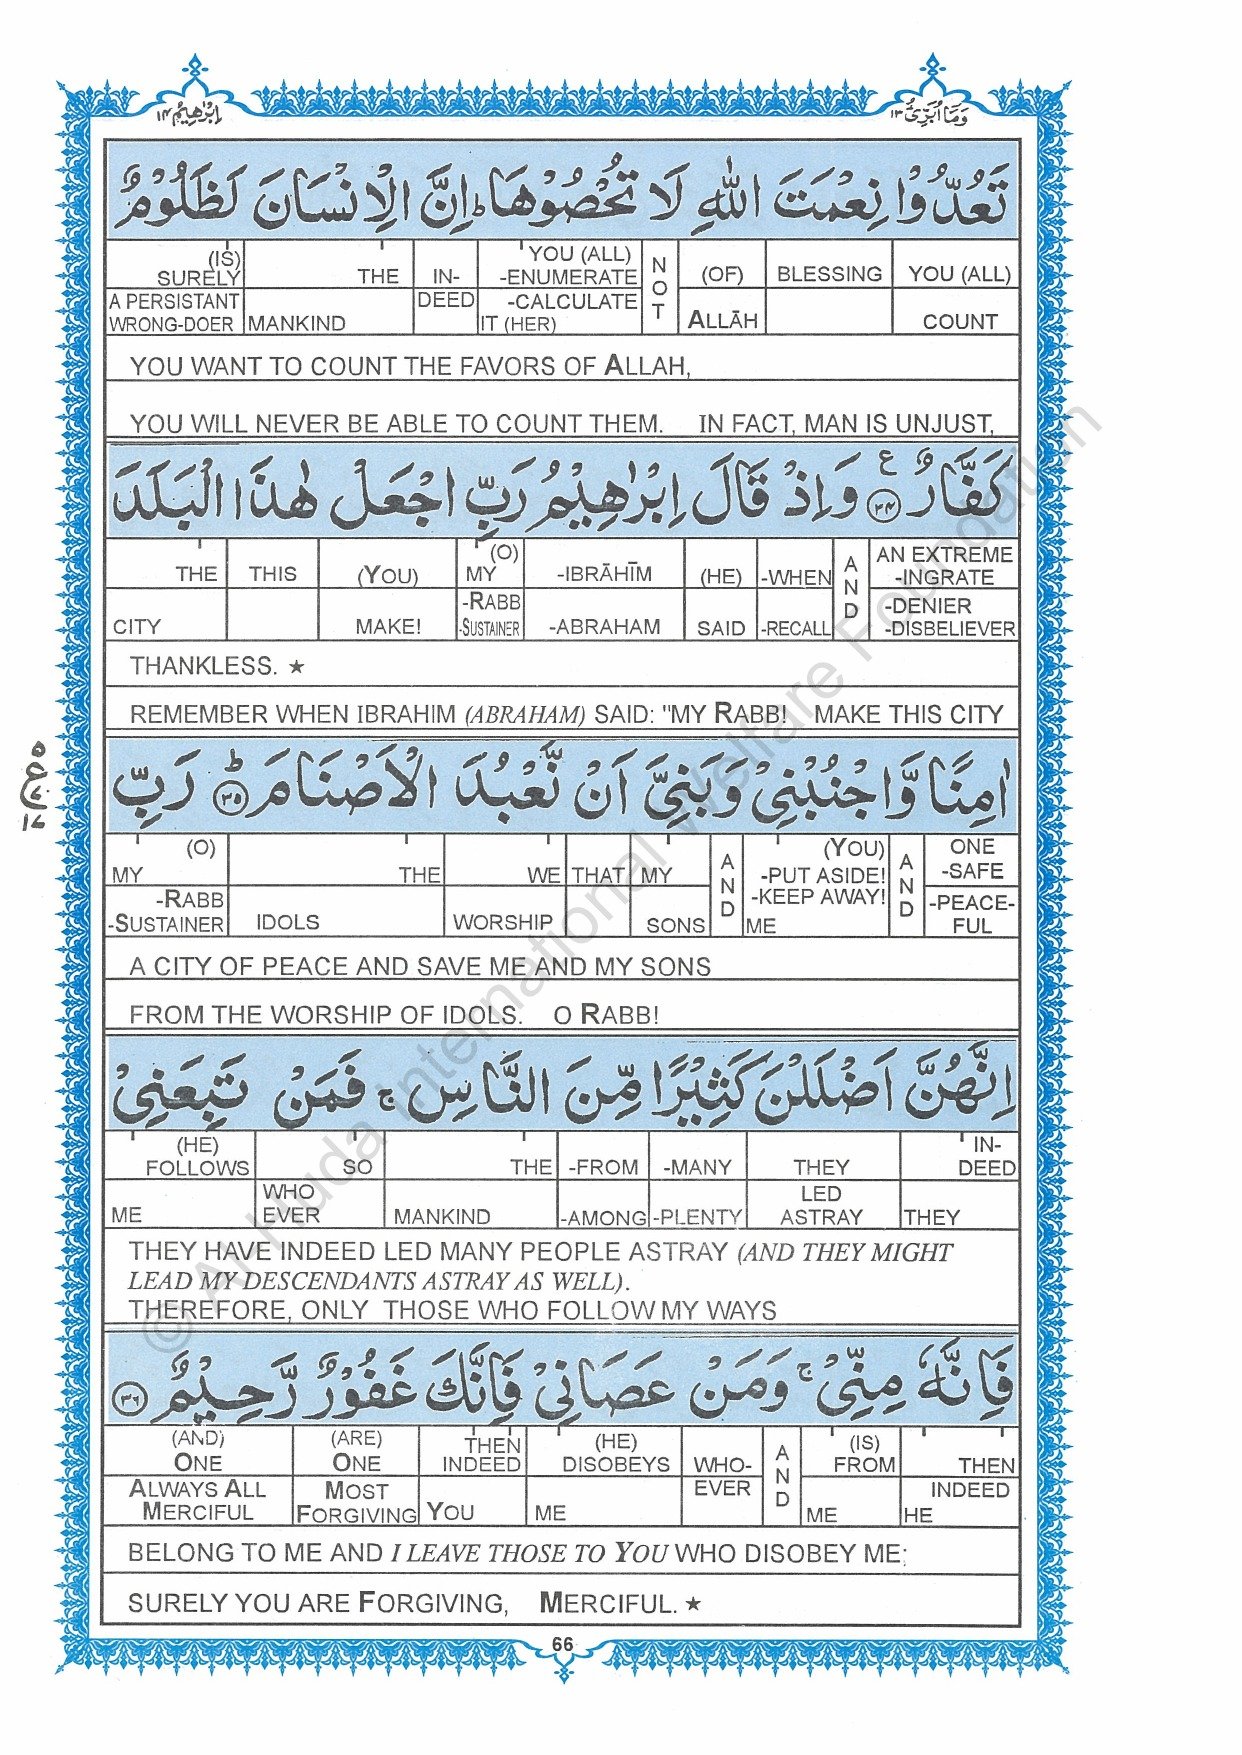 اِبْرٰهِيْمُ ١٤
وَمَآ اُبَرِّئُ ١٣
تَعُدُّوْا نِعْمَتَ اللّٰهِ لَا تُحْصُوْهَا ؕ اِنَّ الْاِنْسَانَ لَظَلُوْمٌ
(IS) SURELY THE IN- YOU (ALL) -ENUMERATE NOT (OF) BLESSING YOU (ALL)
A PERSISTANT WRONG-DOER MANKIND DEED -CALCULATE IT (HER) ALLĀH COUNT
YOU WANT TO COUNT THE FAVORS OF ALLAH,
YOU WILL NEVER BE ABLE TO COUNT THEM. IN FACT, MAN IS UNJUST,
كَفَّارٌ ۧ ﴿٣٤﴾ وَاِذْ قَالَ اِبْرٰهِيْمُ رَبِّ اجْعَلْ هٰذَا الْبَلَدَ
THE THIS (YOU) (O) MY -IBRĀHĪM (HE) -WHEN AND AN EXTREME -INGRATE
CITY MAKE! -RABB -SUSTAINER -ABRAHAM SAID -RECALL -DENIER -DISBELIEVER
THANKLESS. ★
REMEMBER WHEN IBRAHIM (ABRAHAM) SAID: "MY RABB! MAKE THIS CITY
اٰمِنًا وَّاجْنُبْنِيْ وَبَنِيَّ اَنْ نَّعْبُدَ الْاَصْنَامَ ؕ ﴿٣٥﴾ رَبِّ
٥
ع
١٨
(O) MY THE WE THAT MY AND (YOU) -PUT ASIDE! -KEEP AWAY! AND ONE -SAFE
-RABB -SUSTAINER IDOLS WORSHIP SONS ME -PEACE-FUL
A CITY OF PEACE AND SAVE ME AND MY SONS
FROM THE WORSHIP OF IDOLS. O RABB!
اِنَّهُنَّ اَضْلَلْنَ كَثِيْرًا مِّنَ النَّاسِ ۚ فَمَنْ تَبِعَنِيْ
(HE) FOLLOWS SO THE -FROM -MANY THEY IN-DEED
ME WHO EVER MANKIND -AMONG -PLENTY LED ASTRAY THEY
THEY HAVE INDEED LED MANY PEOPLE ASTRAY (AND THEY MIGHT
LEAD MY DESCENDANTS ASTRAY AS WELL).
THEREFORE, ONLY THOSE WHO FOLLOW MY WAYS
فَاِنَّهٗ مِنِّيْ ۚ وَمَنْ عَصَانِيْ فَاِنَّكَ غَفُوْرٌ رَّحِيْمٌ ﴿٣٦﴾
(AND) ONE (ARE) ONE THEN INDEED (HE) DISOBEYS WHO- AND (IS) FROM THEN
ALWAYS ALL MERCIFUL MOST FORGIVING YOU ME EVER ME INDEED HE
BELONG TO ME AND I LEAVE THOSE TO YOU WHO DISOBEY ME;
SURELY YOU ARE FORGIVING, MERCIFUL. ★
66
© Al-Huda International Welfare Foundation